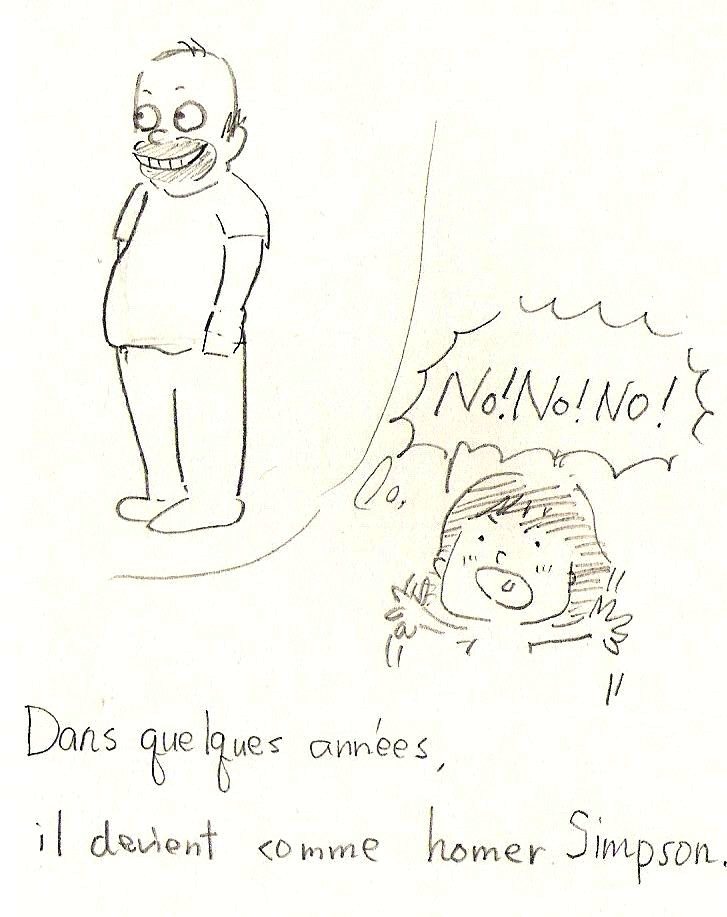 No! No! No!
Dans quelques années,
il devient comme homer Simpson.